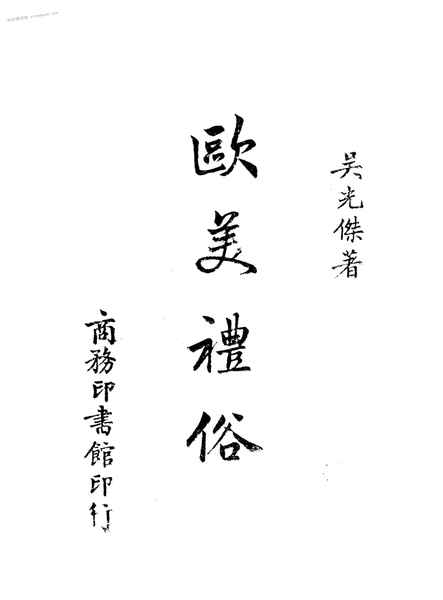 吴光傑著
歐美禮俗
商務印書館印行